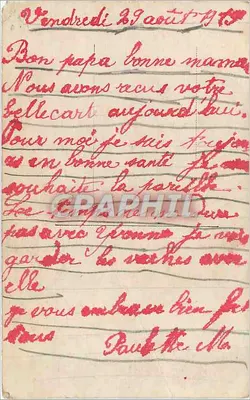 Vendredi 29 août 19
Bon papa bonne maman
Nous avons reçus votre
belle carte aujourd hui.
Pour moi je suis toujou
rs en bonne santé je
souhaite la pareille
CARTAPHIL
pas avec Yvonne je vais
garder les vaches avec
elle
je vous embrasse bien fort
tous
Paulette M